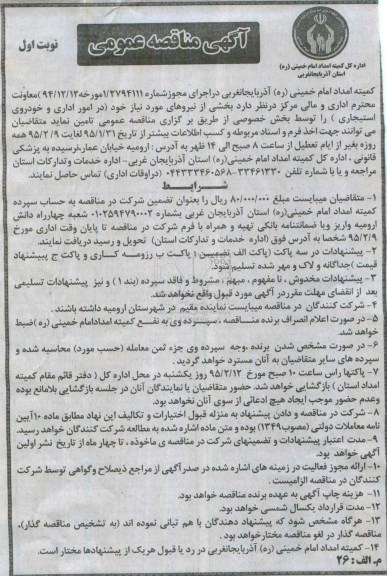 آگهی مناقصه عمومی
نوبت اول
اداره کل کمیته امداد امام خمینی (ره)
استان آذربایجانغربی
کمیته امداد امام خمینی (ره) آذربایجانغربی دراجرای مجوزشماره ۱/۲۷۹۴۱۱۱مورخه۹۴/۱۲/۱۲)معاونت
محترم اداری و مالی مرکز درنظر دارد بخشی از نیروهای مورد نیاز خود (در امور اداری و خودروی
استیجاری ) را توسط بخش خصوصی از طریق بر گزاری مناقصه عمومی تامین نماید متقاضیان
می توانند جهت اخذ فرم و اسناد مربوطه و کسب اطلاعات بیشتر از تاریخ ۹۵/۱/۳۱ لغایت ۹۵/۲/۹ همه
روزه بغیر از ایام تعطیل از ساعت ۸ صبح الی ۱۴ ظهر به آدرس : ارومیه خیابان عمار،نرسیده به پزشکی
قانونی ، اداره کل کمیته امداد امام خمینی(ره) استان آذربایجان غربی- اداره خدمات وتدارکات استان
مراجعه و یا با شماره تلفن ۳۳۴۶۱۳۳۰-۰۴۴۳۳۴۶۰۵۶۸ (دراوقات اداری) تماس حاصل نمایند.
شرایط
۱- متقاضیان میبایست مبلغ ۸۰/۰۰۰/۰۰۰ ریال را بعنوان تضمین شرکت در مناقصه به حساب سپرده
کمیته امداد امام خمینی(ره) استان آذربایجان غربی بشماره ۰۱۰۲۵۹۴۷۹۰۰۰۲ شعبه چهارراه دانش
ارومیه واریز ویا ضمانتنامه بانکی تهیه و همراه با فرم شرکت در مناقصه تا پایان وقت اداری مورخ
۹۵/۲/۹ شخصا به آدرس فوق (اداره خدمات و تدارکات استان) تحویل و رسید دریافت نمایند.
۲- پیشنهادات در سه پاکت (پاکت الف تضمین ؛ پاکت ب رزومه کاری و پاکت ج پیشنهاد
قیمت )جداگانه و لاک و مهر شده تسلیم شود.
۳- پیشنهادات مخدوش ، نا مفهوم ، مبهم ، مشروط و فاقد سپرده (بند ۱) و نیز پیشنهادات تسلیمی
بعد از انقضای مهلت مقرردر آگهی مورد قبول واقع نخواهد شد.
۴- شرکت کنندگان در مناقصه میبایست نماینده مقیم در شهرستان ارومیه داشته باشند.
۵- در صورت اعلام انصراف برنده مناقصه ، سپرده وی به نفع کمیته امدادامام خمینی (ره)ضبط
خواهد شد.
۶- در صورت مشخص شدن برنده ،وجه سپرده وی جزء ثمن معامله (حسب مورد) محاسبه شده و
سپرده های سایر متقاضیان به آنان مسترد خواهد گردید .
۷- پاکتها راس ساعت ۱۰ صبح مورخ ۹۵/۲/۱۲ روز یکشنبه در محل اداره کل ( دفتر قائم مقام کمیته
امداد استان ) بازگشایی خواهد شد. حضور متقاضیان یا نمایندگان آنان در جلسه بازگشایی بلامانع بوده
وعدم حضور موجب ایجاد هیچ ادعائی از سوی آنان نخواهد بود.
۸- شرکت در مناقصه و دادن پیشنهاد به منزله قبول اختیارات و تکالیف این نهاد مطابق ماده ۱۰آیین
نامه معاملات دولتی (مصوب۱۳۴۹) بوده و متن ماده اشاره شده به مطالعه شرکت کنندگان خواهد رسید.
۹- مدت اعتبار پیشنهادات و تضمینهای شرکت در مناقصه ی ماخوذه ، تا چهار ماه از تاریخ نشر اولین
آگهی خواهد بود.
۱۰- ارائه مجوز فعالیت در زمینه های اشاره شده در صدرآگهی از مراجع ذیصلاح وگواهی توسط شرکت
کنندگان در مناقصه الزامیست .
۱۱- هزینه چاپ آگهی به عهده برنده مناقصه خواهد بود.
۱۲- مدت قرارداد یکسال شمسی خواهد بود.
۱۳- هرگاه مشخص شود که پیشنهاد دهندگان با هم تبانی نموده اند (به تشخیص مناقصه گذار)،
مناقصه گذار در لغو مناقصه مختارخواهد بود .
۱۴- کمیته امداد امام خمینی (ره) آذربایجانغربی در رد یا قبول هریک از پیشنهادها مختار است.
م.الف: ۲۶